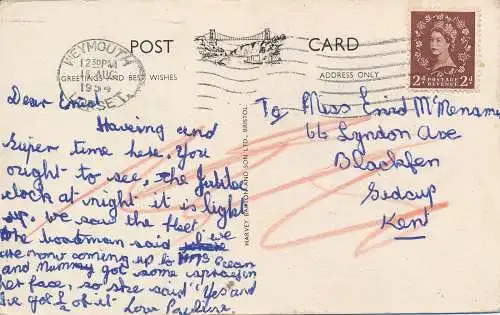 WEYMOUTH
12 50 PM
AUG
1954
DORSET
POST CARD
GREETINGS AND BEST WISHES
ADDRESS ONLY
2D POSTAGE REVENUE 2D
HARVEY BARTON AND SON LTD., BRISTOL
Dear Enid
Haveing and
super time here. You
ought to see, the Jubilee
clock at night it is light
up. We saw the fleet
the boatman said
we are now coming up to HMS Ocean
and Mummy got some spray in
her face, so she said "Yes and
I've got ½ of it Love Pauline.
To Miss Enid McMenamy
66 Lyndon Ave
Blackfen
Sidcup
Kent